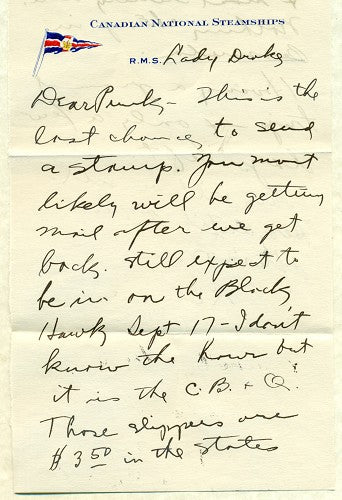 CANADIAN NATIONAL STEAMSHIPS
R.M.S. Lady Drake
Dear Punk - This is the
last chance to send
a stamp. You most
likely will be getting
mail after we get
back. Still expect to
be in on the Black
Hawk Sept 17 - I don't
know the hour but
it is the C.B. + Q.
Those slippers are
$3.50 in the States